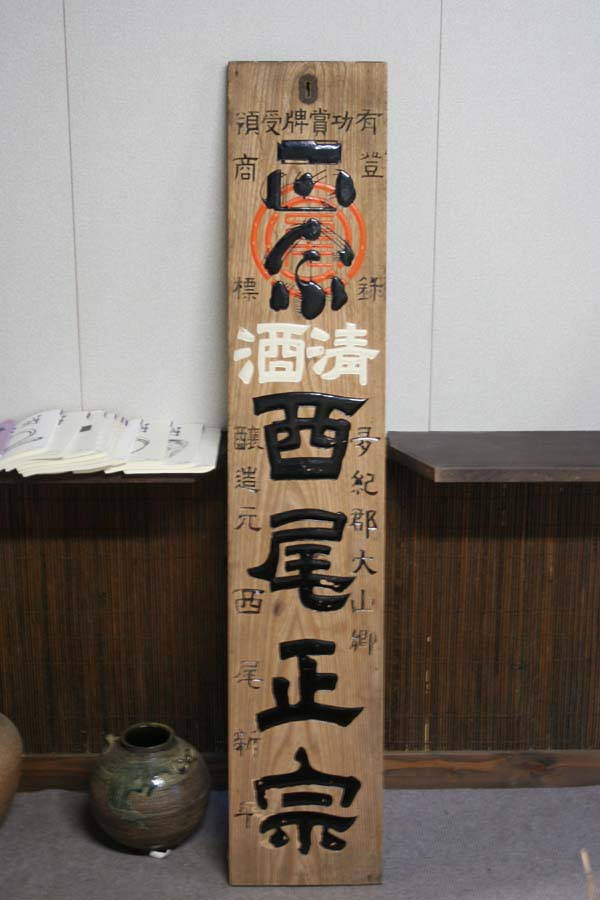 有功賞牌受領
登録
商標
正宗
清酒
多紀郡大山郷
西尾正宗
釀造元 西尾新平